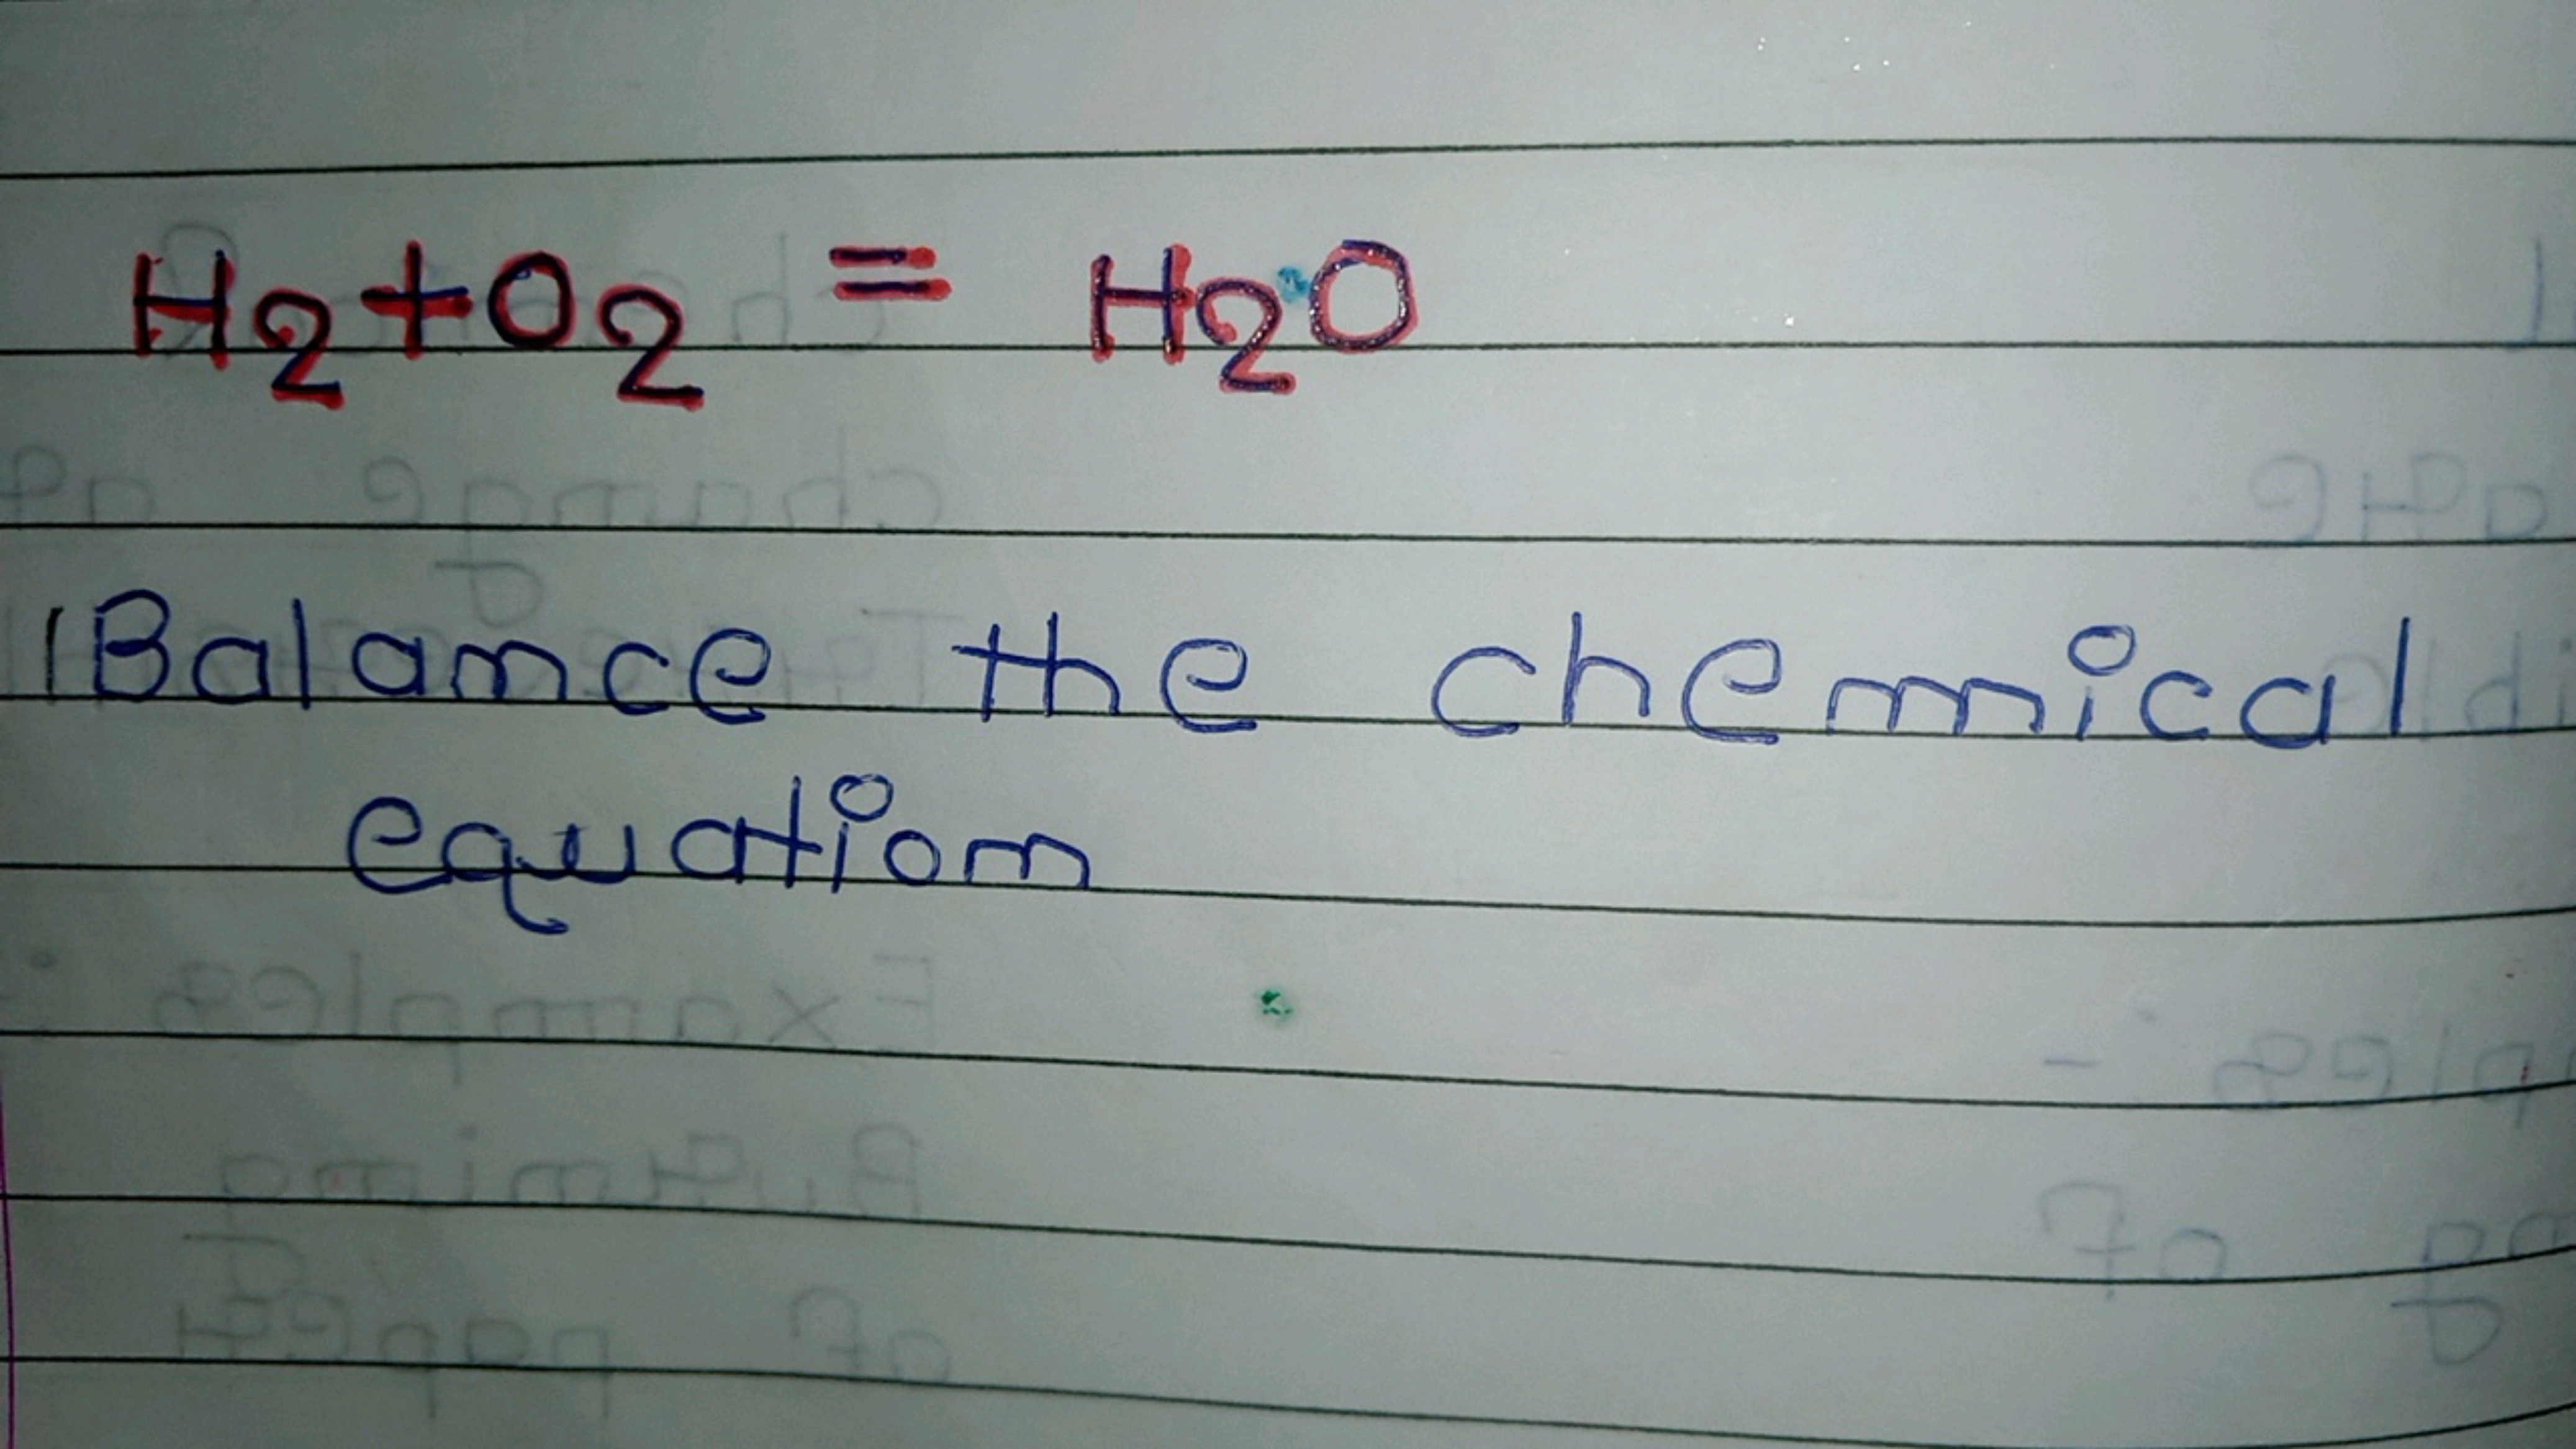 H₂+O₂ = H₂O
Balance the chemical
equation